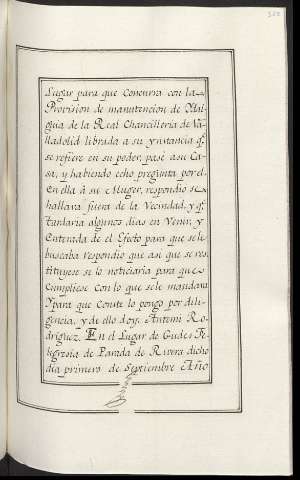 Lugar para que Concurra con la
Provision de manutencion de Hidal-
guia de la Real Chancilleria de Va-
lladolid librada a su ynstancia q.e
se refiere en su poder, pase a su Ca-
sa, y habiendo echo pregunta por el
en ella â su Muger, respondio se
hallava fuera de la Vecindad, y q.e
tardaria algunos dias en Venir, y
Enterada de el Efecto para que se le
buscaba respondio que asi que se res-
tituyese se lo noticiaria para que
Cumpliese con lo que se le mandava
Ypara que Conste lo pongo por dili-
gencia, y de ello doy fe. Antemi Ro-
dríguez. En el Lugar de Gudes Fe-
ligresia de Parada de Rivera dicho
dia primero de Septiembre Año